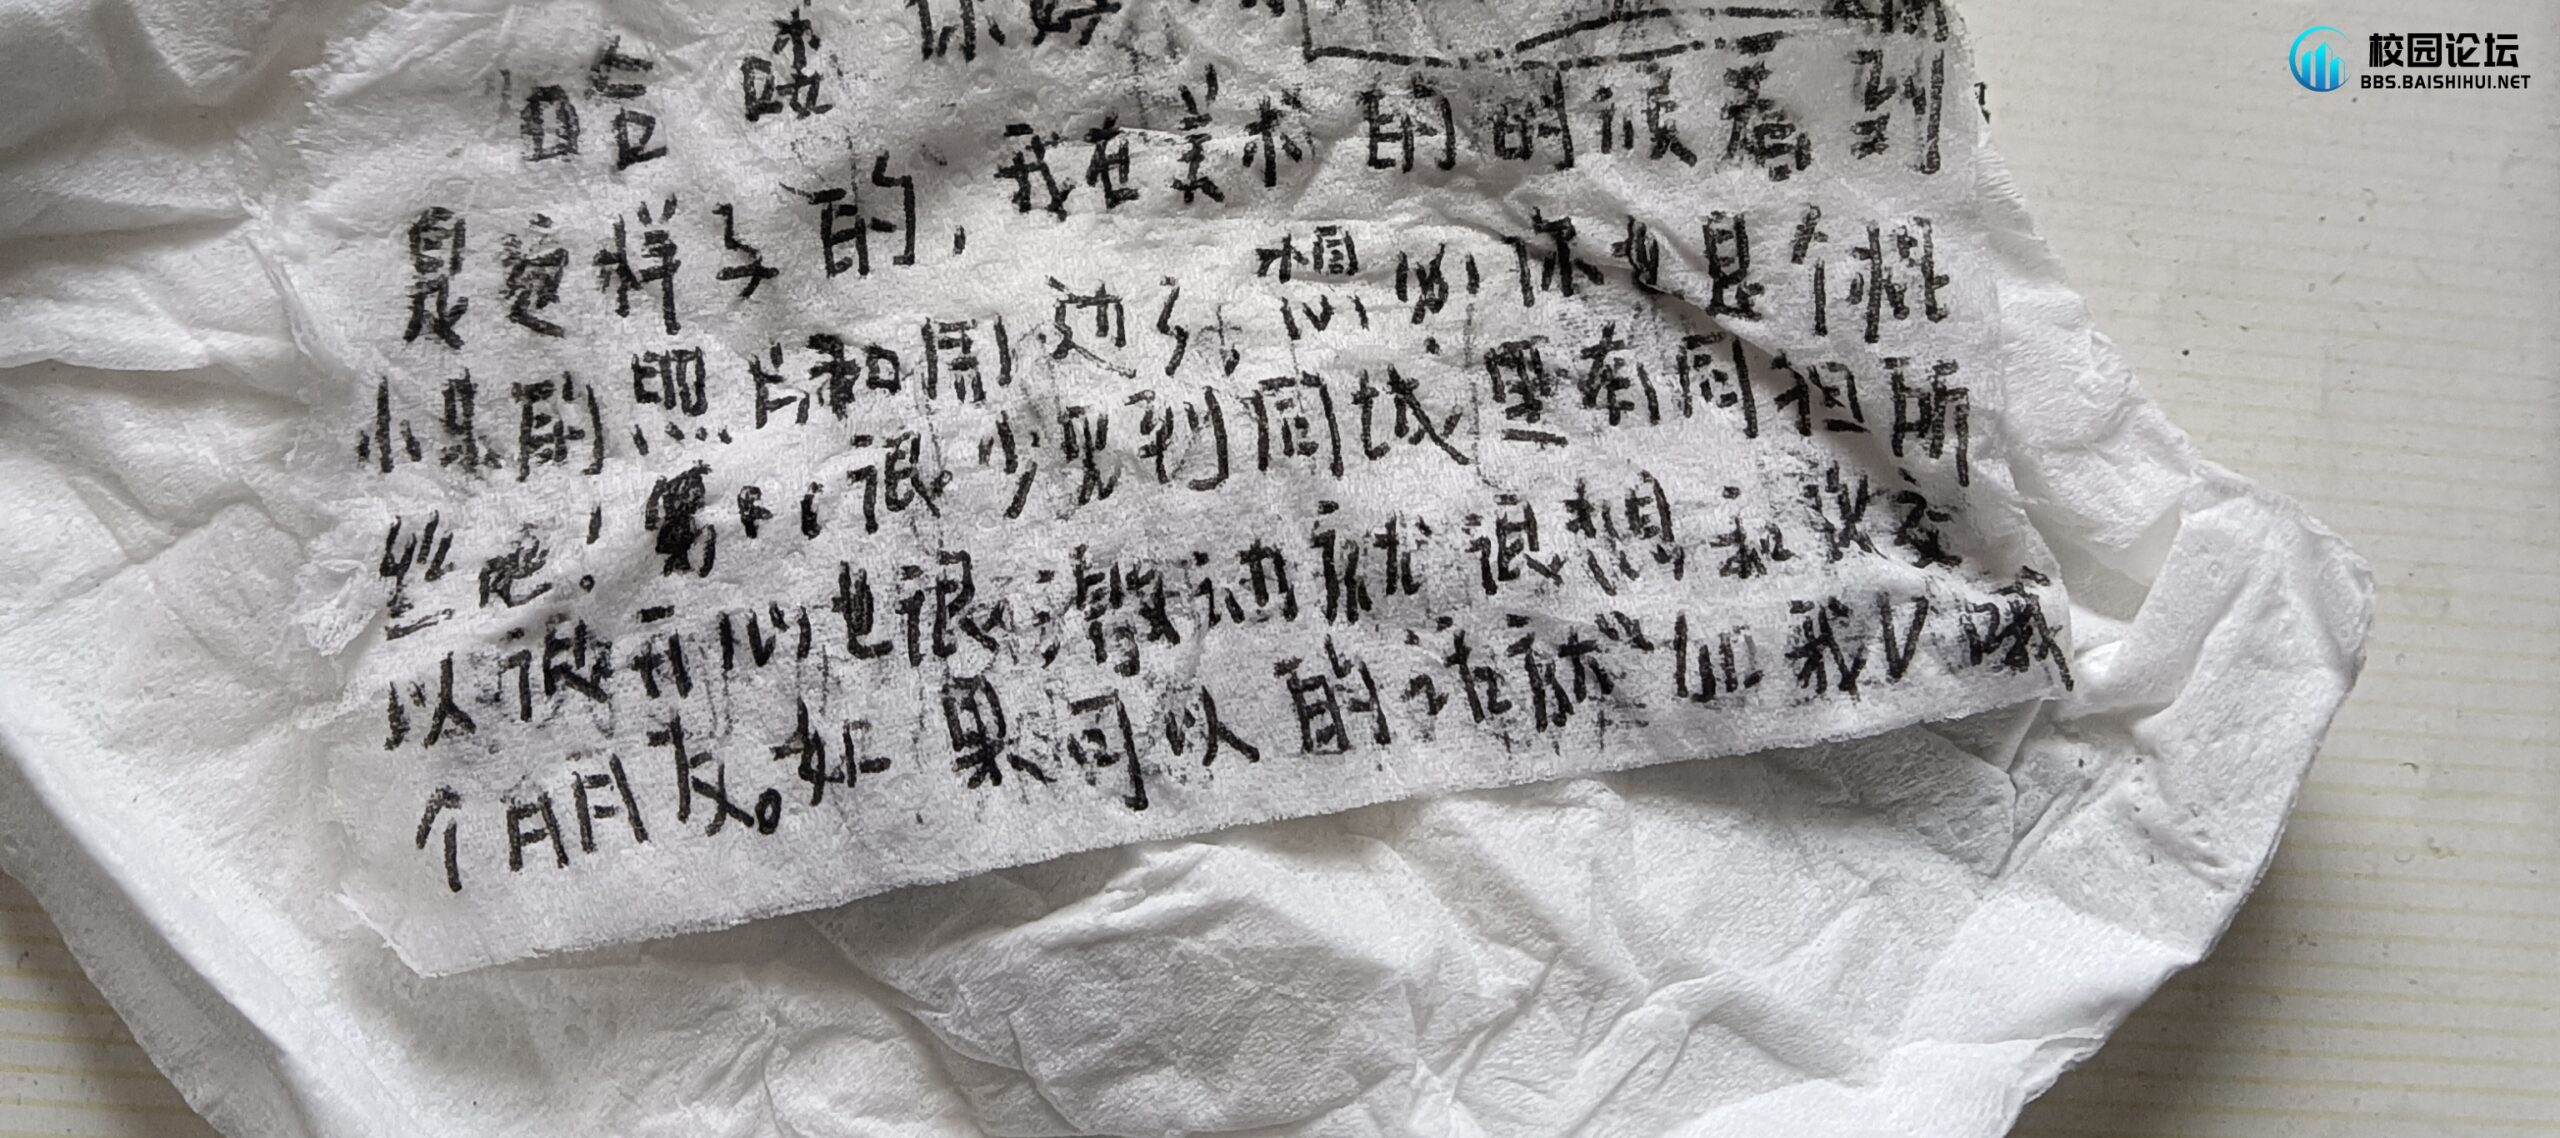 校园论坛
BBS.BAISHIHUI.NET
哈喽 你好
是这样子的,我在美术的时候看到
小朱的照片和周边纟 想必你也是个粉
丝吧! 很少见到同城里有同担所
以很开心也很激动就很想和你交
个朋友。如果可以的话就加我V哦